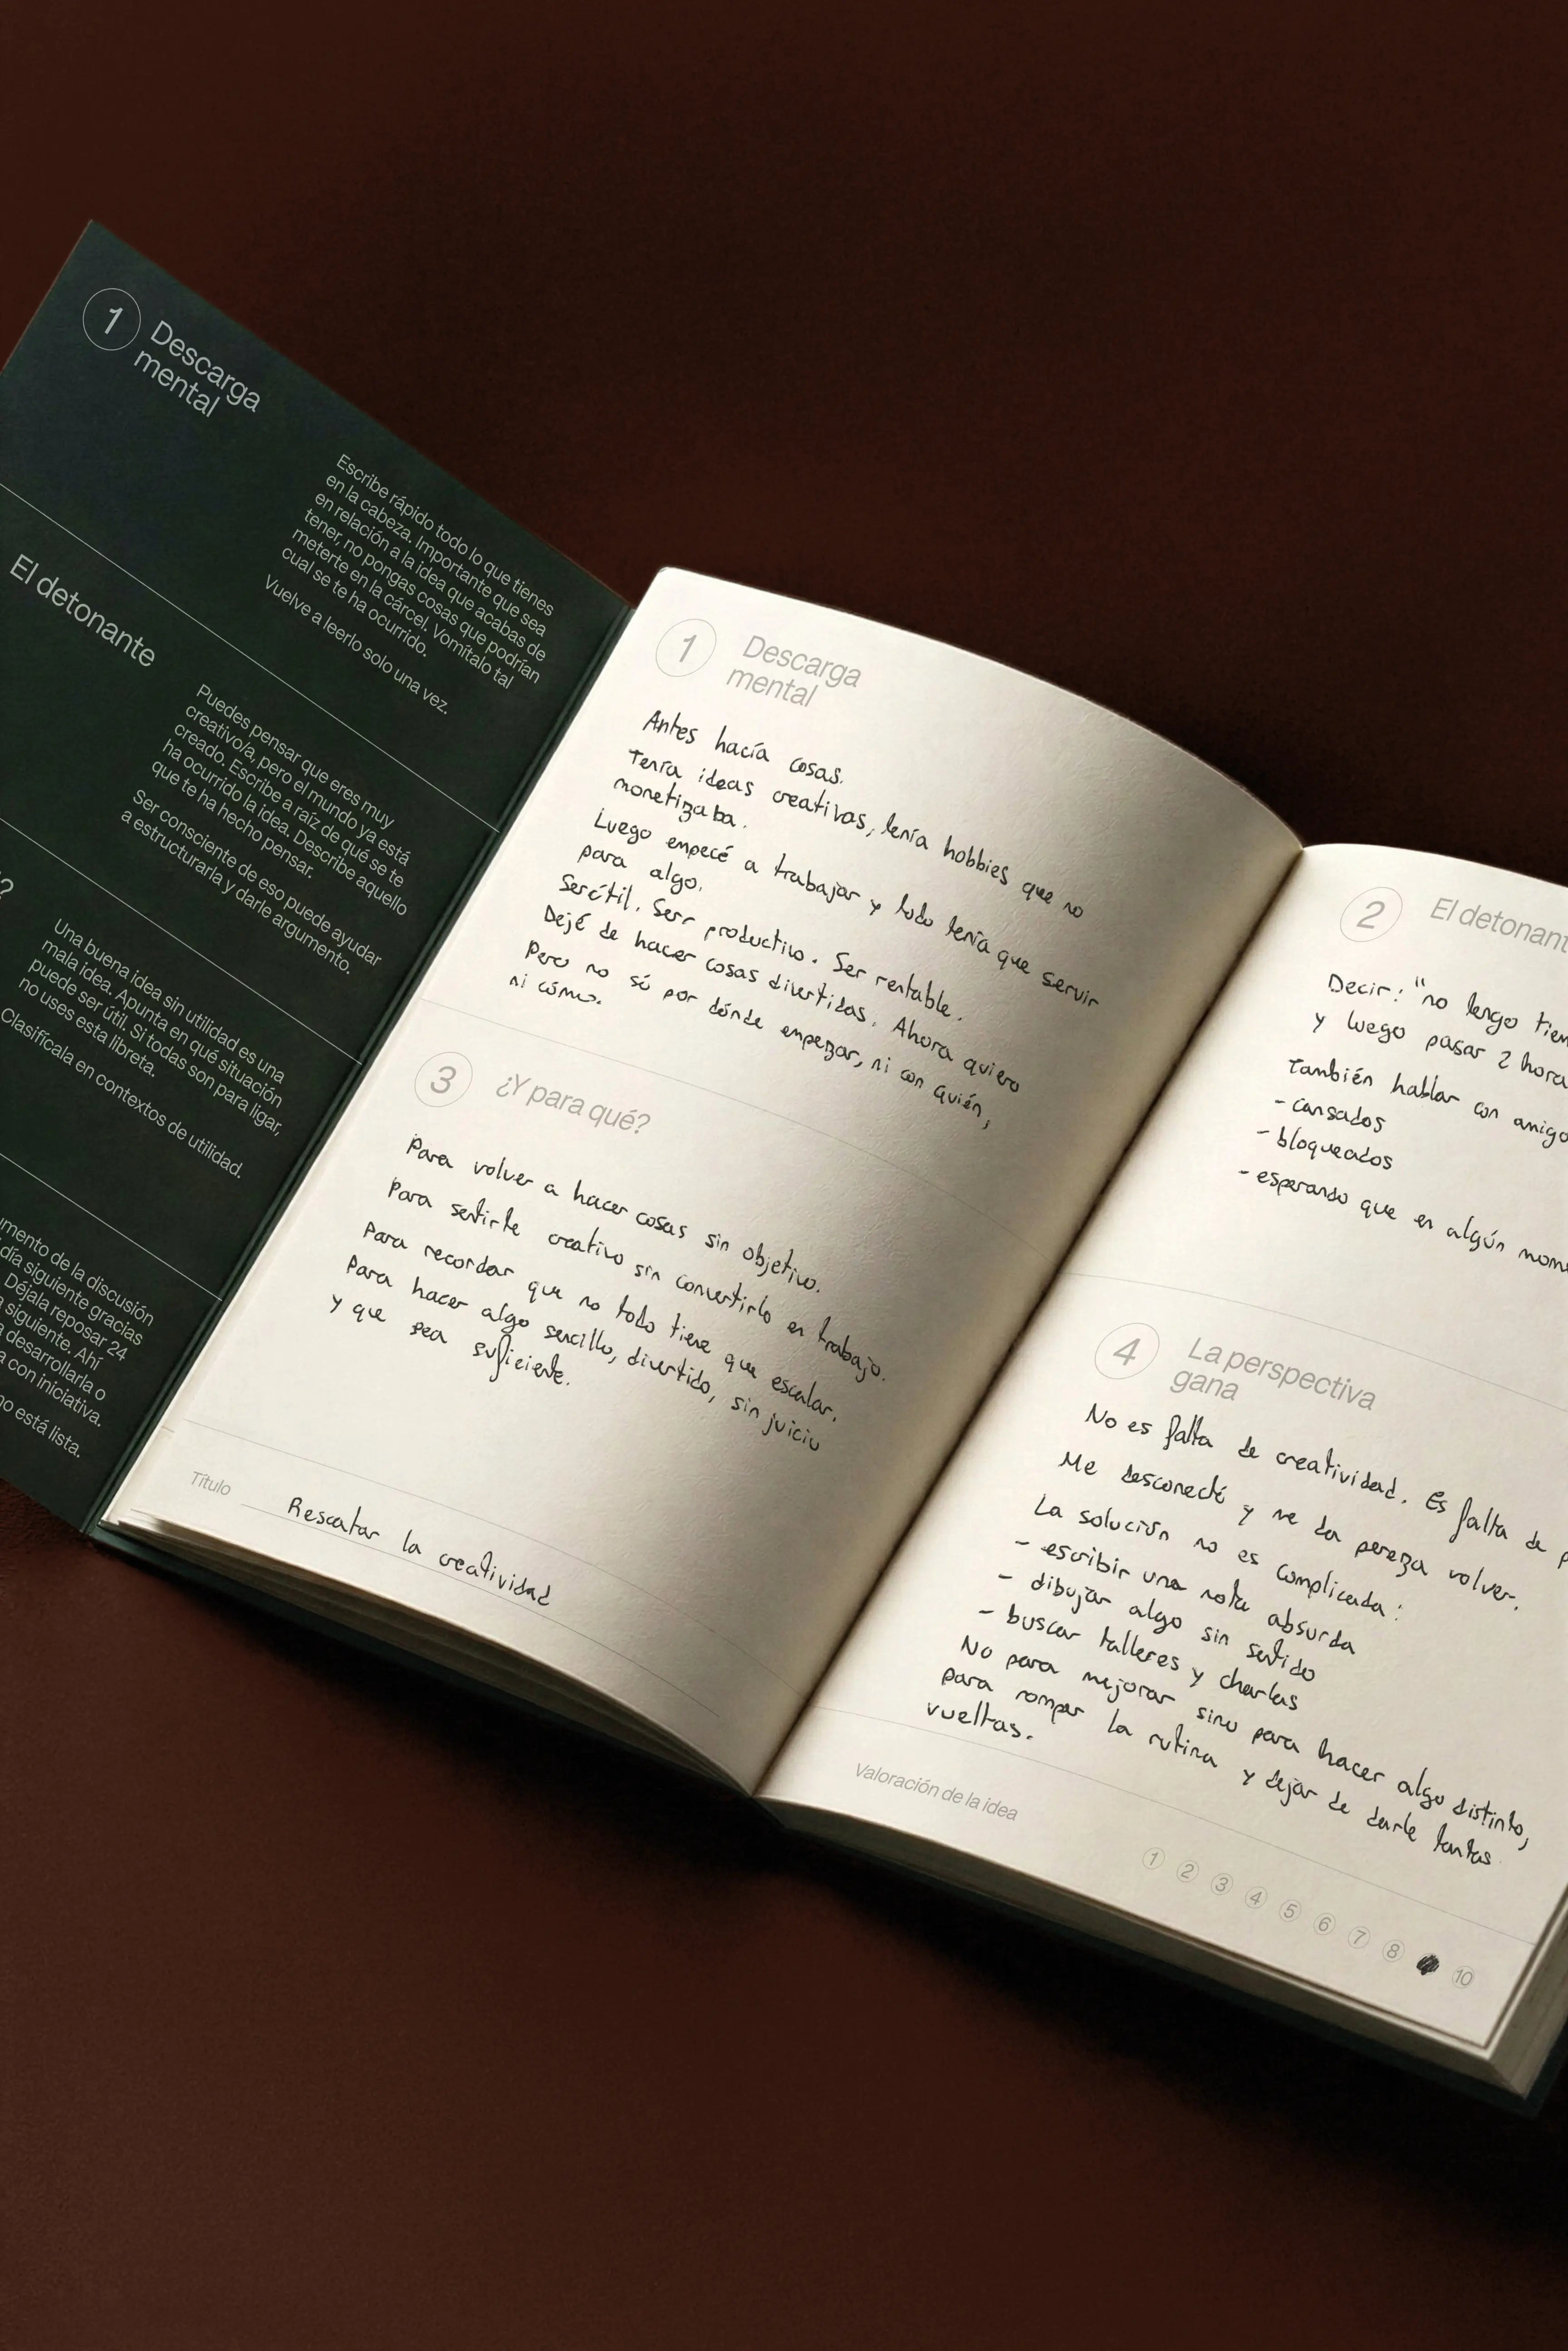 1
Descarga
mental
Escribe rápido todo lo que tienes
en la cabeza. Importante que sea
en relación a la idea que acabas de
tener, no pongas cosas que podrían
meterte en la cárcel. Vomítalo tal
cual se te ha ocurrido.
Vuelve a leerlo solo una vez.
El detonante
Puedes pensar que eres muy
creativo/a, pero el mundo ya está
creado. Escribe a raíz de qué se te
ha ocurrido la idea. Describe aquello
que te ha hecho pensar.
Ser consciente de eso puede ayudar
a estructurarla y darle argumento.
?
Una buena idea sin utilidad es una
mala idea. Apunta en qué situación
puede ser útil. Si todas son para ligar,
no uses esta libreta.
Clasifícala en contextos de utilidad.
de la discusión
día siguiente gracias
Déjala reposar 24
siguiente. Ahí
desarrollarla o
con iniciativa.
está lista.
1
Descarga
mental
Antes hacía cosas.
Tenía ideas creativas, tenía hobbies que no
monetizaba.
Luego empecé a trabajar y todo tenía que servir
para algo.
Ser útil. Ser productivo. Ser rentable.
Dejé de hacer cosas divertidas. Ahora quiero
Pero no sé por dónde empezar, ni con quién,
ni cómo.
3
¿Y para qué?
Para volver a hacer cosas sin objetivo.
Para sentirte creativo sin convertirlo en trabajo.
Para recordar que no todo tiene que escalar.
Para hacer algo sencillo, divertido, sin juicio
y que sea suficiente.
Título
Rescatar la creatividad
2
El detonant
Decir: "no tengo tiem
y luego pasar 2 hora
También hablar con amigo
- cansados
- bloqueados
- esperando que en algún mom
4
La perspectiva
gana
No es falta de creatividad. Es falta de
Me desconecté y me da pereza volver.
La solución no es complicada:
- escribir una nota absurda
- dibujar algo sin sentido
- buscar talleres y charlas
No para mejorar sino para hacer algo distinto,
para romper la rutina y dejar de darle tantas
vueltas.
Valoración de la idea
1 2 3 4 5 6 7 8 10